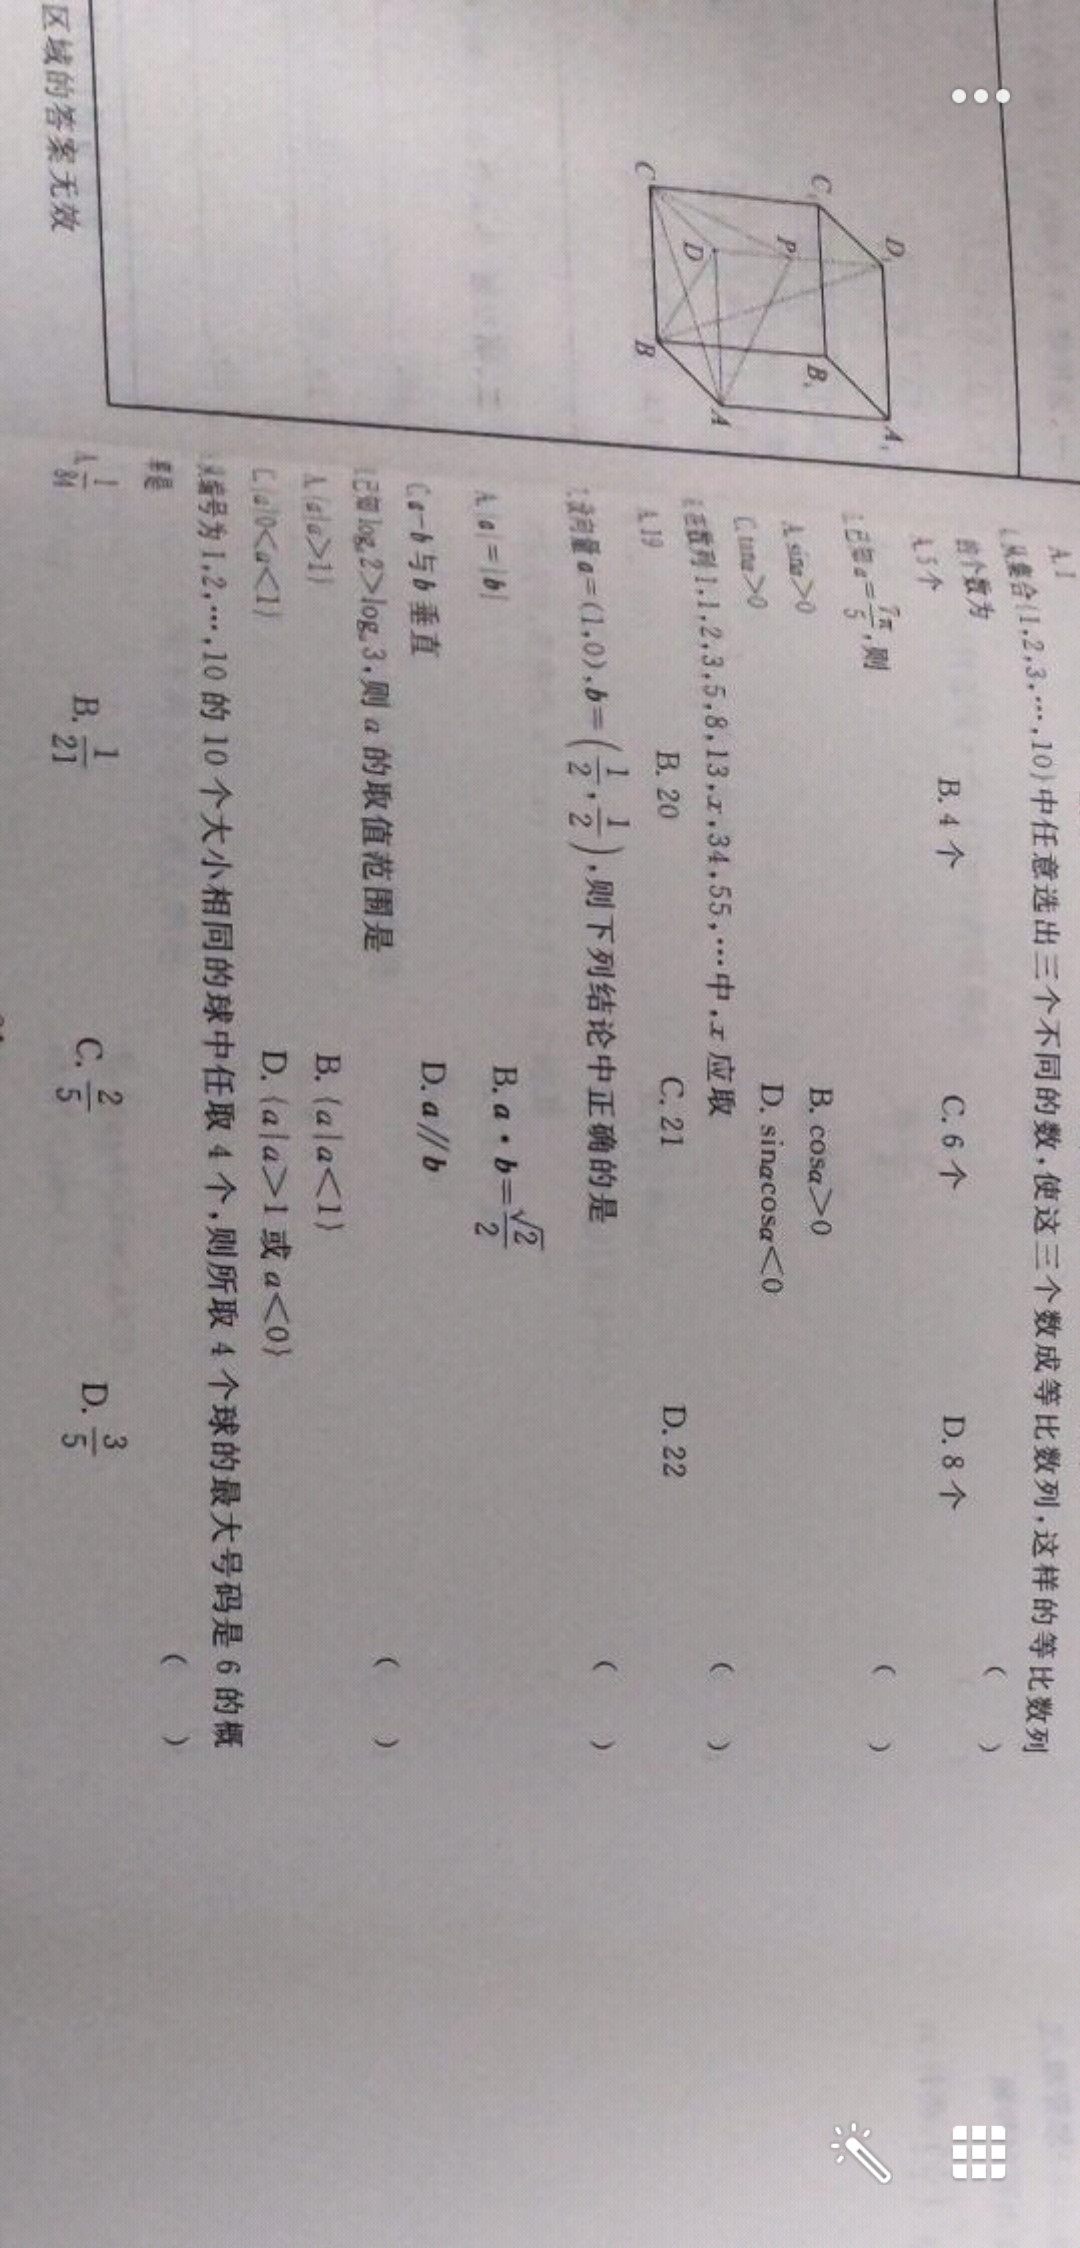 A.1
4.从集合{1,2,3,…,10}中任意选出三个不同的数,使这三个数成等比数列,这样的等比数列
的个数为 ( )
A.5个 B.4个 C.6个 D.8个
5.已知α=7π/5,则 ( )
A.sinα>0 B.cosα>0
C.tanα>0 D.sinαcosα<0
6.在数列1,1,2,3,5,8,13,x,34,55,…中,x应取 ( )
A.19 B.20 C.21 D.22
7.设向量a=(1,0),b=(1/2,1/2),则下列结论中正确的是 ( )
A.|a|=|b| B.a·b=√2/2
C.a-b与b垂直 D.a∥b
8.已知logₐ2>logₐ3,则a的取值范围是 ( )
A.{a|a>1} B.{a|a<1}
C.{a|0<a<1} D.{a|a>1或a<0}
从编号为1,2,…,10的10个大小相同的球中任取4个,则所取4个球的最大号码是6的概
率是 ( )
A.1/84 B.1/21 C.2/5 D.3/5
D₁
A₁
C₁
B₁
P
D
A
C
B
区域的答案无效